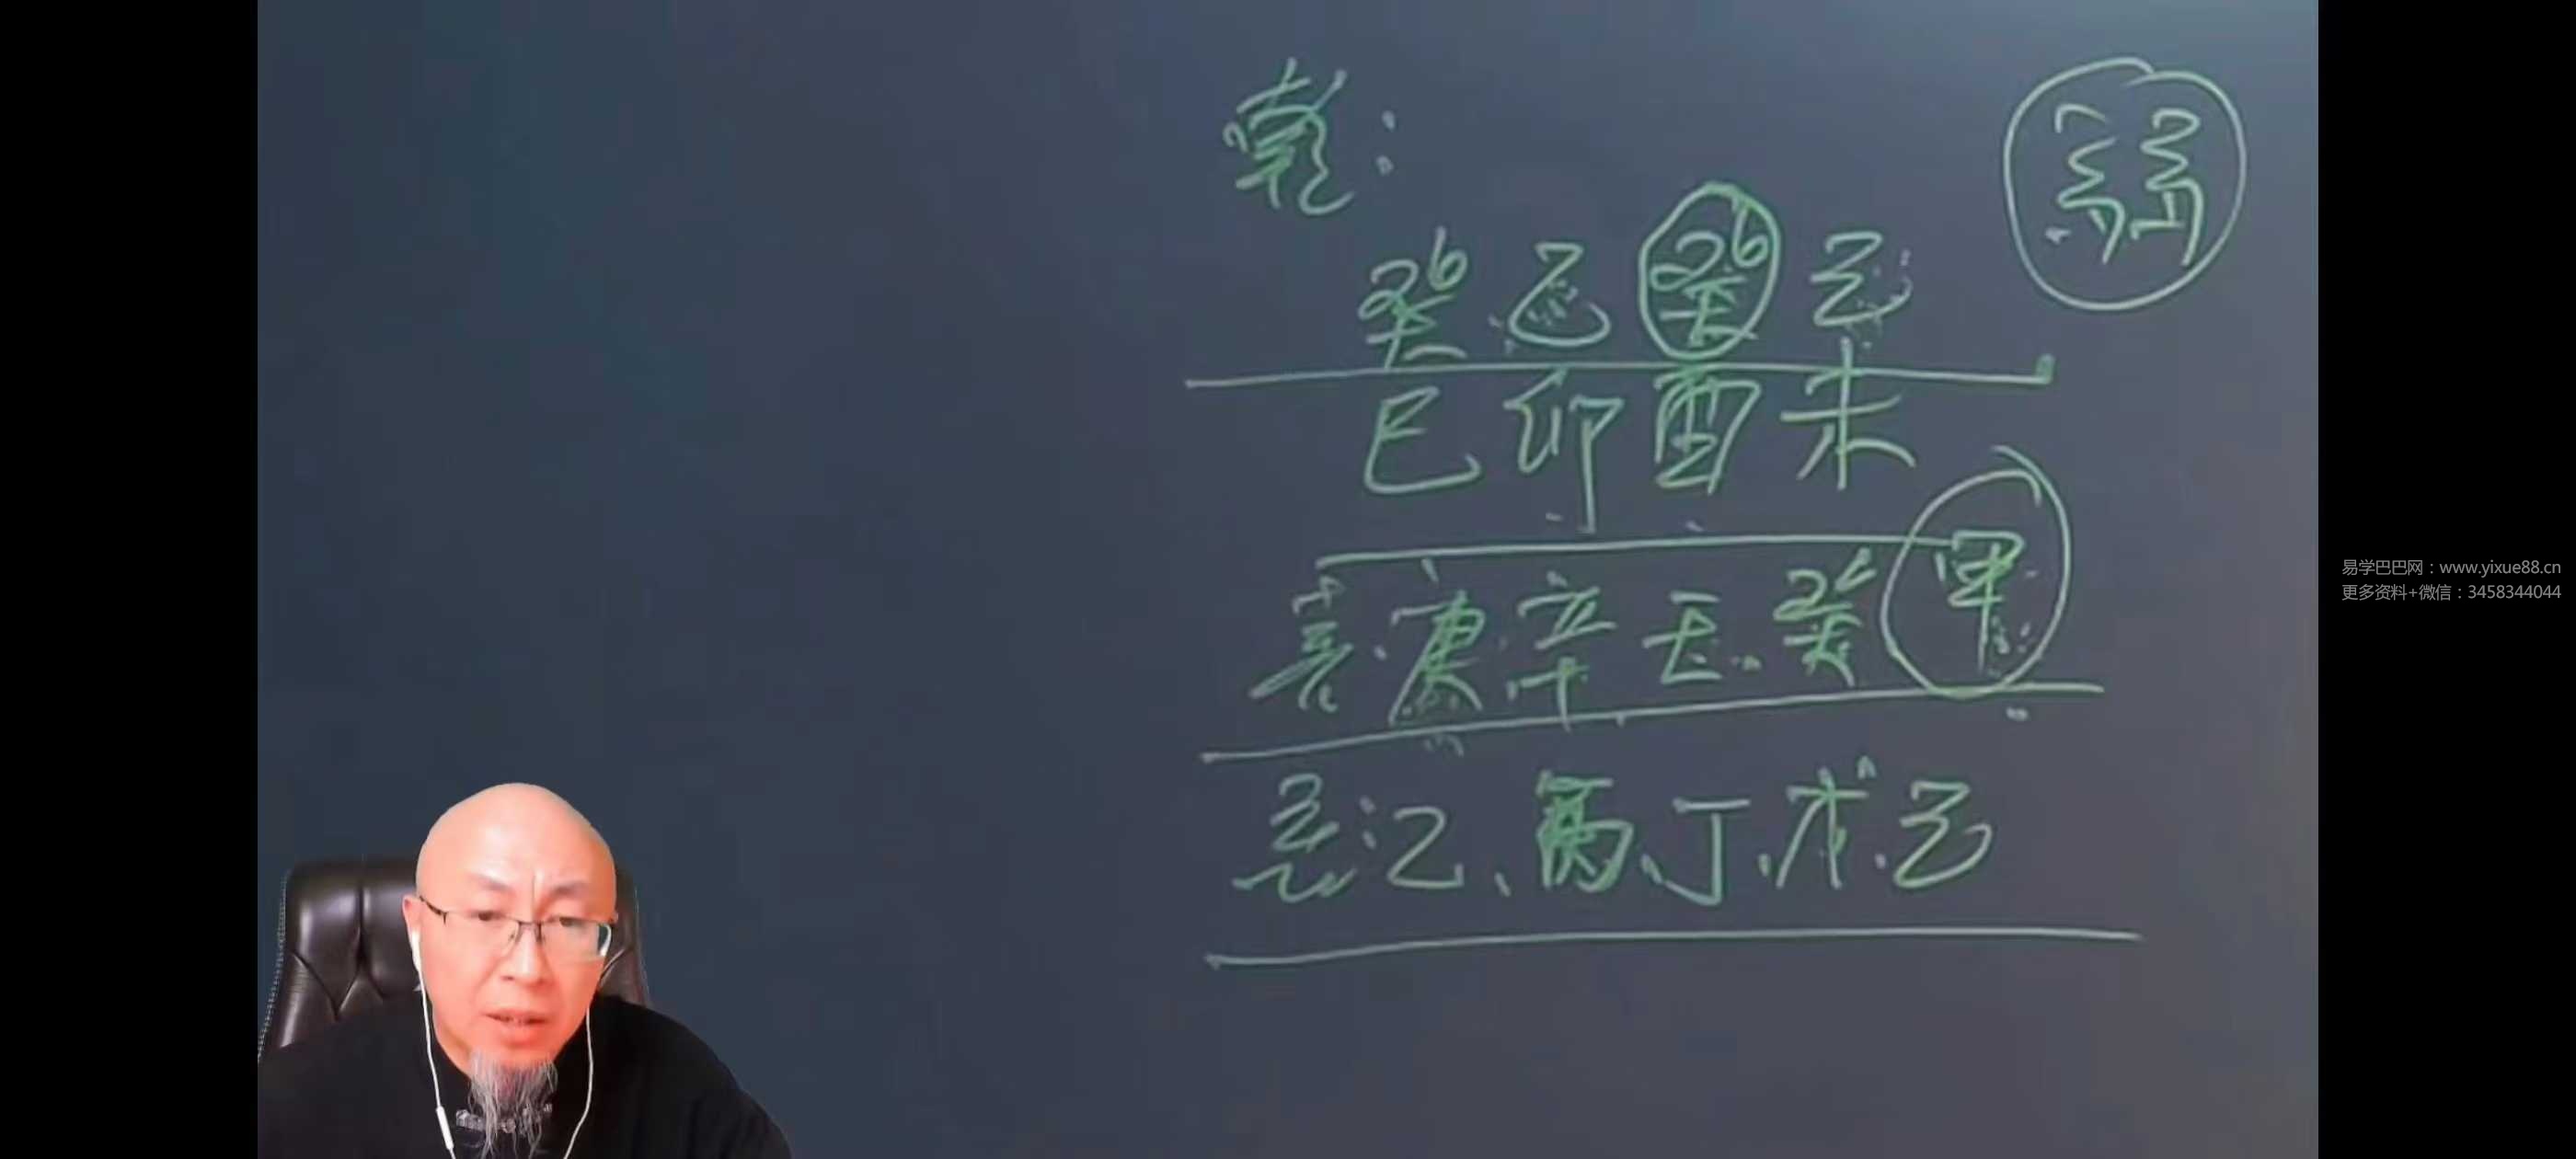 乾: 弱
癸 乙 癸 己
巳 卯 酉 未
喜:庚.辛.壬.癸 甲
忌:乙、丙、丁、戊、己
易学巴巴网：www.yixue88.cn
更多资料+微信：3458344044